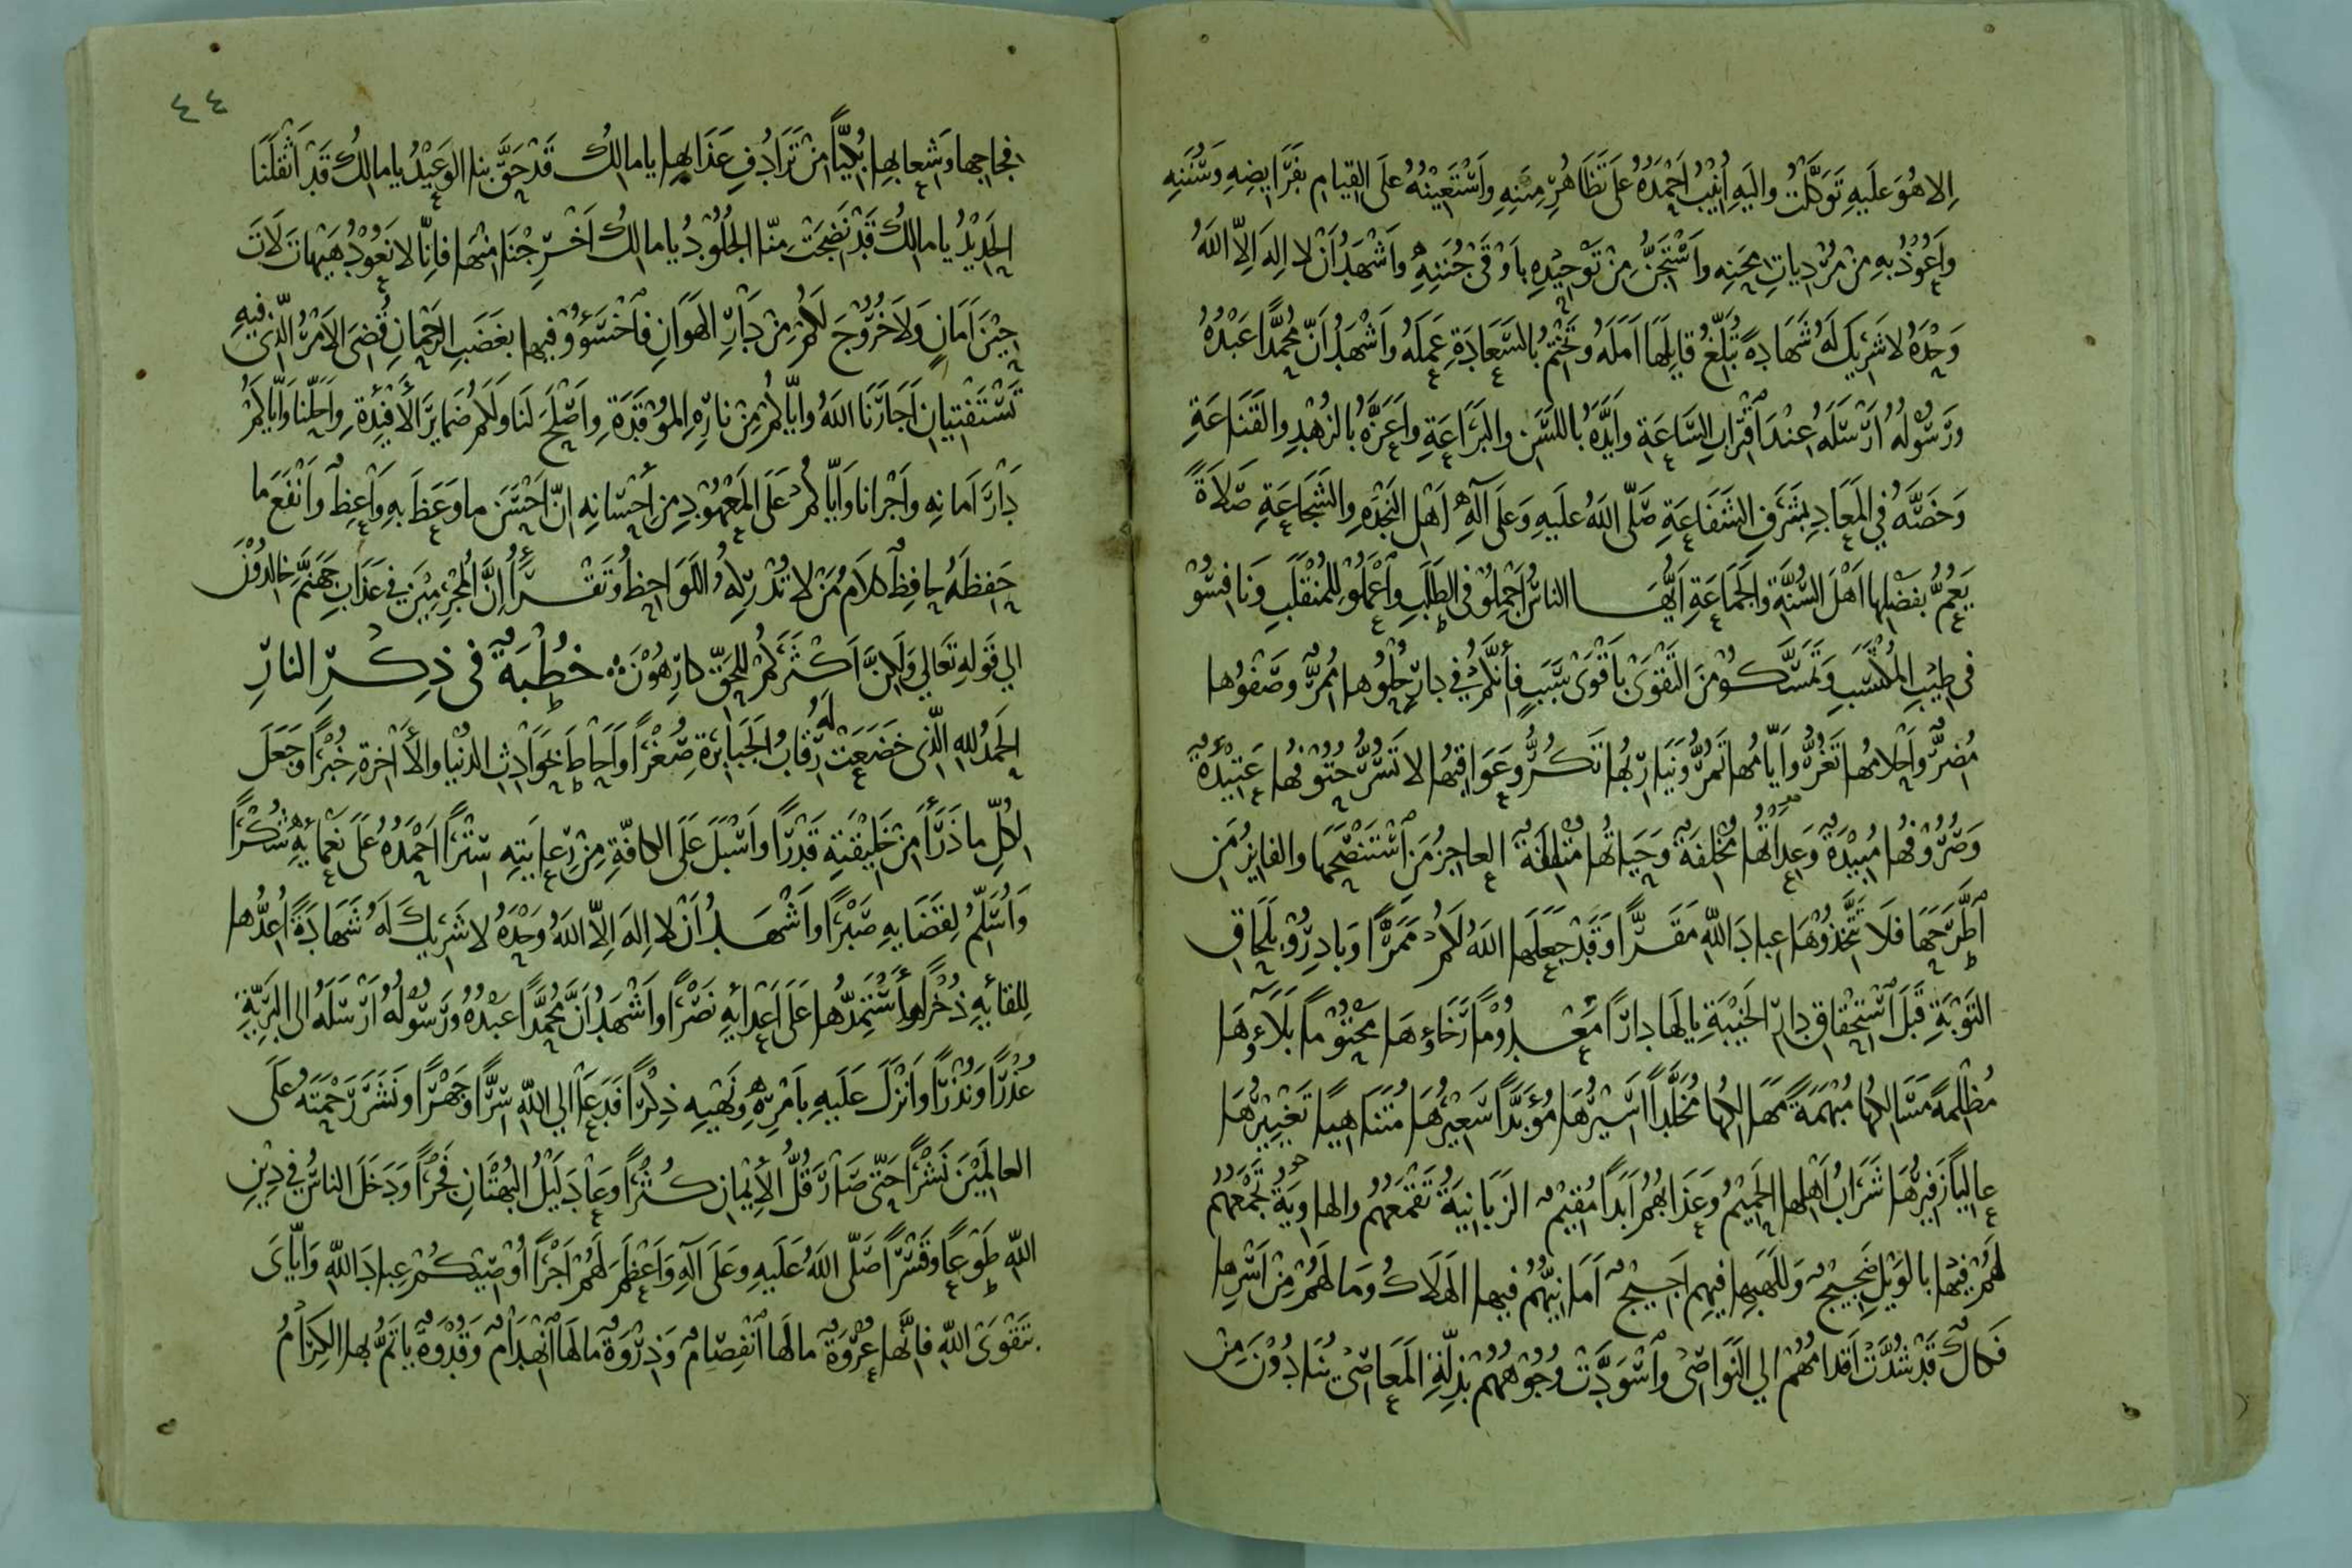 اِلا هُوَ عَلَيهِ تَوَكَّلْتُ واليَهِ اُنِيْبُ اَحْمَدُهُ عَلَى تَظَاهُرِ مِنَنِهِ وَاَسْتَعِيْنُهُ عَلَى القِيامِ بفَرَايِضِهِ وَسُنَنِهِ
وَاَعُوْذُ بِهِ مِنْ مُرْدِياتِ مِحَنِهِ واَسْتَجِنُّ مِنْ تَوْحِيْدِهِ باَوْقَى جُنَنِهِ وَاَشْهَدُ اَنْ لا اِلهَ اِلاّ اللهُ
وَحْدَهُ لا شَرِيكَ لَهُ شَهَادةً تُبَلِّغُ قايِلَهَا اَمَلَهُ وتَخْتِمُ بالسَّعَادَةِ عَمَلَهُ وَاَشْهَدُ اَنَّ مُحَمَّدًا عَبْدُهُ
وَرَسُوْلُهُ اَرْسَلَهُ عِنْدَ اَقْتِرابِ السَّاعَةِ وَاَيَّدَهُ باللسَنِ والبَرَاعَةِ وَاَعَزَّهُ بالزُهْدِ والقَنَاعَةِ
وَخَصَّهُ فِي المَعَادِ بشَرَفِ الشَفَاعَةِ صَلّى اللهُ عَليهِ وَعَلَى آلِهِ اَهْلِ النَجْدَةِ والشَجَاعَةِ صَلاَةً
يَعُمُّ بفَضْلِها اَهْلَ السُّنَّةِ وَالجَمَاعَةِ اَيُّهَا الناسُ اَجْمِلُوْ فى الطَلَبِ وَاَعْمَلُوْ لِلمُنْقَلَبِ وَنَافِسُوْ
فى طِيْبِ المُكْتَسَبِ وَتَمَسَّكُوْ مِنَ التَقْوَىْ باَقْوَىْ سَبَبٍ فأَنَّكُمْ فِي دارٍ حُلْوُها مُمِرٌّ وصَفْوُها
مُضِرٌّ وَاَحْلامُها تَغُرُّ وَاَيّامُها تَمُرُّ وَنَيَارِبُها تَكُرُّ وعَوَاقِبُها لا تَسُرُّ حُتُوْفُها عَتِيْدَةٌ
وَصُرُوْفُها مُبِيْدَةٌ وَعِدَاتُها مُخْلِفَةٌ وَحَيَاتُها مُتْلِفَةٌ العاجِزُ مَنِ اَسْتَنْصَحَها والفايِزُ مَنِ
اَطَّرَحَها فَلاَ تَتَّخِذُوْهَا عِبادَ اللهِ مَقَرًّا وَقَدْ جَعَلَها اللهُ لَكُمْ مَمَرًّا وَبادِرُوْ بلَحَاقِ
التَوْبَةِ قَبْلَ اَسْتِحْقاقِ دارِ الخَيْبَةِ يالَها دارًا مَعْدُوْمًا رَخَاؤهَا مَحْتُوْمًا بَلاَؤهَا
مُظْلِمَةً مَسَالِكُها مُبْهَمَةً مَهَالِكُها مُخَلَّدًا اَسِيْرُهَا مُؤَبَّدًا سَعِيْرُهَا مُتَنَاهِيًا تَغْيِيْرُهَا
عالِيًا زَفِيْرُهَا شَرَابُ اَهْلِها الحَمِيْمُ وَعَذَابُهُمْ اَبَدًا مُقِيْمٌ الزَبَانِيَةُ تَقْمَعُهُم والهاوِيَةُ تَجْمَعُهُم
لَهُمْ فِيْها بالوَيْلِ ضَجِيْجٌ وَللَهَبِها فِيهِم اَجِيْجٌ اَمَانِيُّهُم فِيها الهَلاَكُ وَمَا لَهُمْ مِنْ اَسْرِها
فَكاكٌ قَدْ شُدَّتْ اَقْدامُهُمْ الي النَوَاصِىْ وَاَسْوَدَّتْ وُجُوْهُهُمْ بذِلَّةِ المَعَاصِىْ يُنَادُوْنَ مِنْ
٤٤
فجاجها وَشِعابِها بُكِيًّا مِنْ تَرَادُفِ عَذَابِها يا مالِكُ قَدْ حَقَّ بنا الوَعِيْدُ يا مالِكُ قَدْ اَثْقَلَنَا
الحَدِيْدُ يا مالِكُ قَدْ نَضِجَتْ مِنّا الجُلُوْدُ يا مالِكُ اَخْرِجْنَا مِنْهَا فاِنّا لا نَعُوْدُ هَيْهَاتَ لاَتَ
حِيْنَ اَمَانٍ وَلاَ خُرُوْجَ لَكُمْ مِنْ دَارِ الهَوَانِ فاَخْسَؤُوْ فِيها بغَضَبِ الرَحْمانِ قُضِىَ الاَمْرُ الّذِى فِيهِ
تَسْتَفْتِيانِ اَجَارَنَا اللهُ واِيّاكُمْ مِنْ نارِهِ المُوْقَدَةِ وَاَصْلَحَ لَنا ولَكُم ضَمايِرَ الأَفْيِدةِ وَاَحَلَّنا واِيّاكُمْ
دارَ اَمَانِهِ وَاَجْرانا وَايّاكُمْ عَلَى المَعْهُوْدِ مِنْ اَحْسَانِهِ اِنَّ اَحْسَنَ ما وَعَظَ بهِ وَاَعِظٌ واَنْفَعَ ما
حَفِظَهُ حافِظٌ كلاَمُ مَنْ لا تُدْرِكُهُ اللَوَاحِظُ وَتَقْرَأُ اِنَّ المُجْرِمِيْنَ فِي عَذَابِ جَهَنَّمَ خالِدُوْنَ
الي قَولِهِ تَعَالي وَلَكِنَّ اَكْثَرَكُمْ لِلحَقِّ كارِهُوْنَ ۞ خُطْبَةٌ فى ذِكْرِ النارِ
الحَمْدُ للهِ الّذِى خَضَعَتْ لَهُ رِقَابُ الجَبَابِرَةِ صُغْرًا وَاَحَاطَ بحَوَادِثِ الدُنْيا والأَاخِرَةِ خُبْرًا وجَعَلَ
لِكُلِّ ما ذَرَأَ مِنْ خَلِيْقَتِهِ قَدْرًا واَسْبَلَ عَلَى الكافّةِ مِنْ رِعايَتِهِ سِتْرًا اَحْمَدُهُ عَلَى نَعْمائِهِ شُكْرًا
وَاُسَلِّمُ لِقَضَايِهِ صَبْرًا وَاَشْهَدُ اَنْ لا اِلهَ اِلاّ اللهُ وَحْدَهُ لا شَرِيكَ لَهُ شَهَادَةً اُعِدُّها
لِلِقائِهِ ذُخْرًا وأَسْتَمِدُّها عَلَى اَعْدائِهِ نَصْرًا وَاَشْهَدُ اَنَّ مُحَمَّدًا عَبْدُهُ وَرَسُوْلُهُ اَرْسَلَهُ الى البَرِيّةِ
عُذْرًا وَنُذْرًا وَاَنْزَلَ عَلَيهِ باَمْرِهِ وَنَهْيِهِ ذِكْرًا فَدَعَا الي اللهِ سِرًّا وجَهْرًا ونَشَرَ رَحْمَتَهُ عَلَى
العالَمِيْنَ نَشْرًا حَتّى صَارَ قُلُّ الأِيْمانِ كُثْرًا وَعَادَ لَيْلُ البُهْتَانِ فَجْرًا وَدَخَلَ الناسُ فِي دِيْنِ
اللهِ طَوْعًا وقَسْرًا صَلّى اللهُ عَلَيهِ وعَلَى آلِهِ وَاَعْظَمَ لَهُمْ اَجْرًا اُوْصِيْكُمْ عِبادَ اللهِ وَاِيّاىَ
بتَقْوَىْ اللهِ فاِنَّها عُرْوَةٌ مالَها اَنْفِصَامٌ وَذِرْوَةٌ مالَها اَنْهِدَامٌ وَقُدْوَةٌ ياتَمُّ بها الكِرَامُ